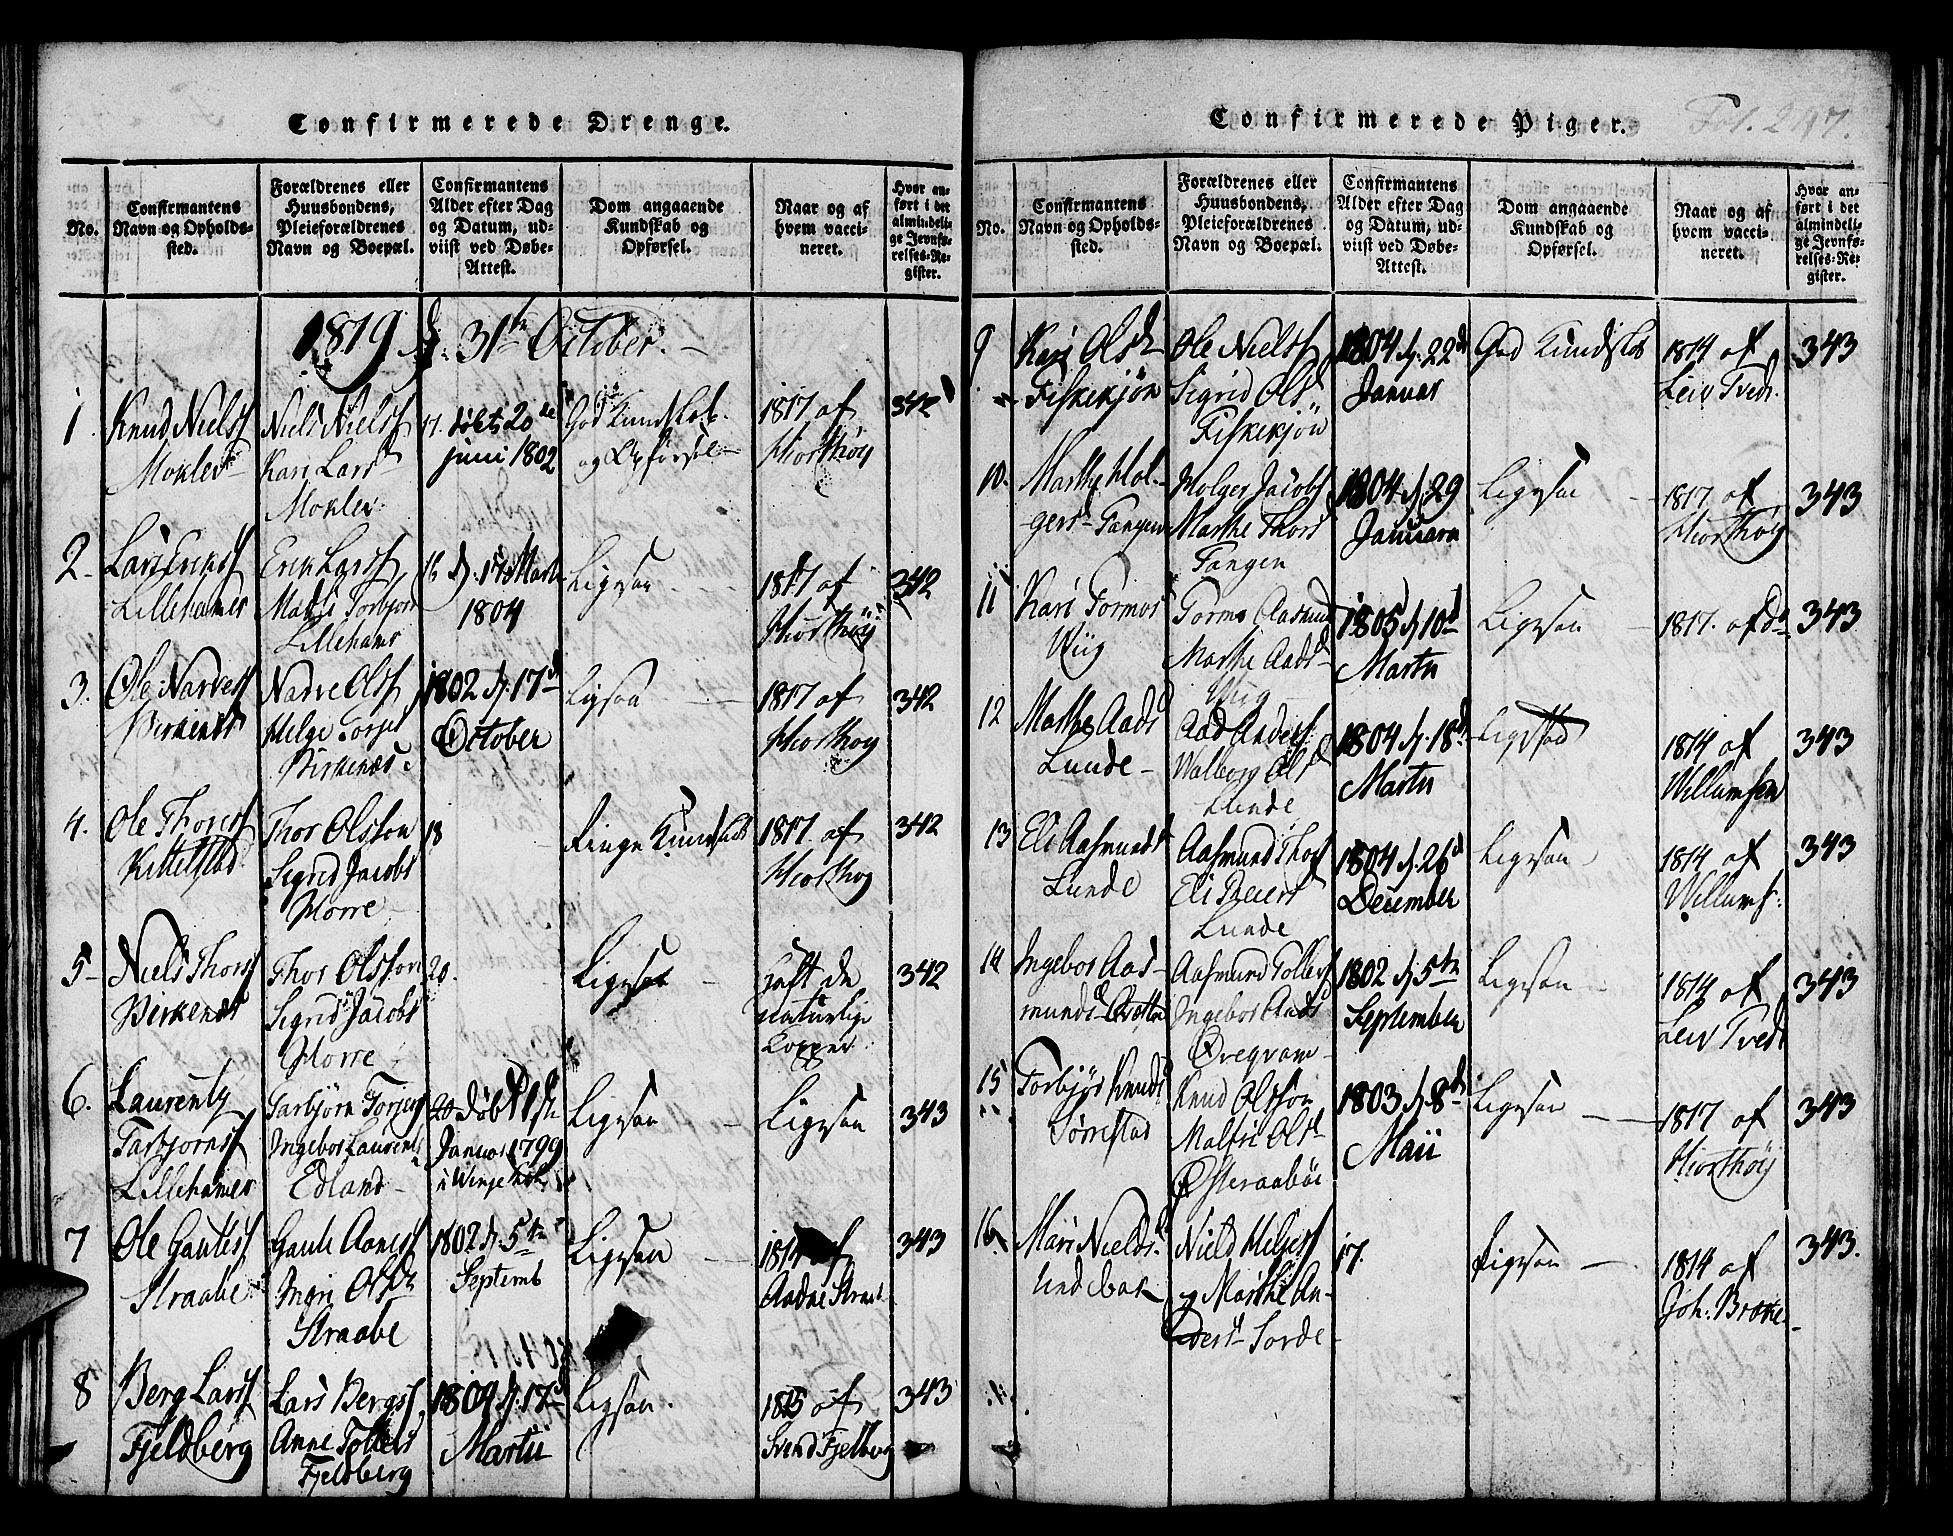 Confirmerede Drenge.
No.
Confirmantens
Navn og Opholds-
sted.
Forældrenes eller
Huusbondens,
Pleieforældrenes
Navn og Boepæl.
Confirmantens
Alder efter Dag
og Datum, ud-
viist ved Døbe-
Attest.
Dom angaaende
Kundskab og
Opførsel.
Naar og af
hvem vacci-
neret.
Hvor an-
ført i det
almindeli-
ge Jevnfø-
relses-Re-
gister.
1819 d. 31te October.
1.
Knud Niels
Mokler
Niels Niels
Kari Lars
Mokler
17. døbt 20de
juni 1802
God Kundskab
og Opførsel
1817 af
Hiorthøy
342
2
Lars Eriks
Lillehamer
Erik Lars
Torbjørn
Lillehamer
16 d. 17 Marti
1804
Ligesaa
1817 af
Hiorthøy
342
3.
Ole Narves
Birkenæs
Narve Ols
Helge Torjus
Birkenæs
1802 d. 17de
October
Ligesaa
1817 af
Hiorthøy
342
4.
Ole Thores
Kittelstad
Thor Olsson
Sigrid Jacobs
Morre
18
Ringe Kundskab
1817 af
Hiorthøy
342
5
Niels Thors
Birkenæs
Thor Olsson
Sigrid Jacobs
Morre
20.
Ligesaa
haft de
naturlige
Kopper
342
6.
Laurents
Tarbjørns
Lillehamer
Tarbjørn Torjus
Ingebor Laurents
Edland
20 døbt 1ste
Januar 1799
i Winje
Ligesaa
Ligesaa
343
7
Ole Gautes
Straabe
Gaute Aanes
Ingri Olsdr
Straabe
1802 d. 5te
Septemb
Ligesaa
1814 af
Aadne Straab
343
8
Berg Lars
Fjeldberg
Lars Bergs
Anne Tollefs
Fjeldberg
1804 d. 17de
Martii
Ligesaa
1815 af
Svend Fjelberg
343
Confirmerede Piger.
Fol. 247.
No.
Confirmantens
Navn og Opholds-
sted.
Forældrenes eller
Huusbondens,
Pleieforældrenes
Navn og Boepæl.
Confirmantens
Alder efter Dag
og Datum, ud-
viist ved Døbe-
Attest.
Dom angaaende
Kundskab og
Opførsel.
Naar og af
hvem vacci-
neret.
Hvor an-
ført i det
almindeli-
ge Jevnfø-
relses-Re-
gister.
9
Kari Olsdr
Fiskekjøn
Ole Niels
Sigrid Olsd
Fiskekjøn
1804 d. 22d
Januar
God Kundskab
1814 af
Leiv Tvedt
343
10.
Marthe Hol-
gers Tangen
Holger Jacobs
Marthe Thors
Tangen
1804 d. 29
Januarii
Ligesaa
1817 af
Hiorthøy
343
11
Kari Tormos
Wiig
Tormo Aasmund
Marthe Aads
Wiig
1805 d. 10d
Martii
Ligesaa
1817. af Do
343
12
Marthe Aads
Lunde
Aad Anders
Walborg Ols
Lunde
1804 d. 18d
Martii
Ligesaa
1814 af
Willumsen
343
13
Eli Aasmunds
Lunde
Aasmund Thors
Eli Peers
Lunde
1804 d. 26d
December
Ligesaa
1814 af
Willums.
343
14
Ingebor Aas-
munds
Aasmund Tollefs
Ingebor Aads
Øvegvam
1802 d. 5te
September
Ligesaa
1814 af
Leiv Tvedt
343
15
Torbjør Knuds
Tørrestad
Knud Olsson
Malfri Olsd
Østeraabøe
1803 d. 8de
Maii
Ligesaa
1817 af
Hiorthøy
343
16.
Mari Nields
Lindebak
Nield Helges
og Marthe An-
ders Sorde
17.
Ligesaa
1814 af
Joh. Broke
343.